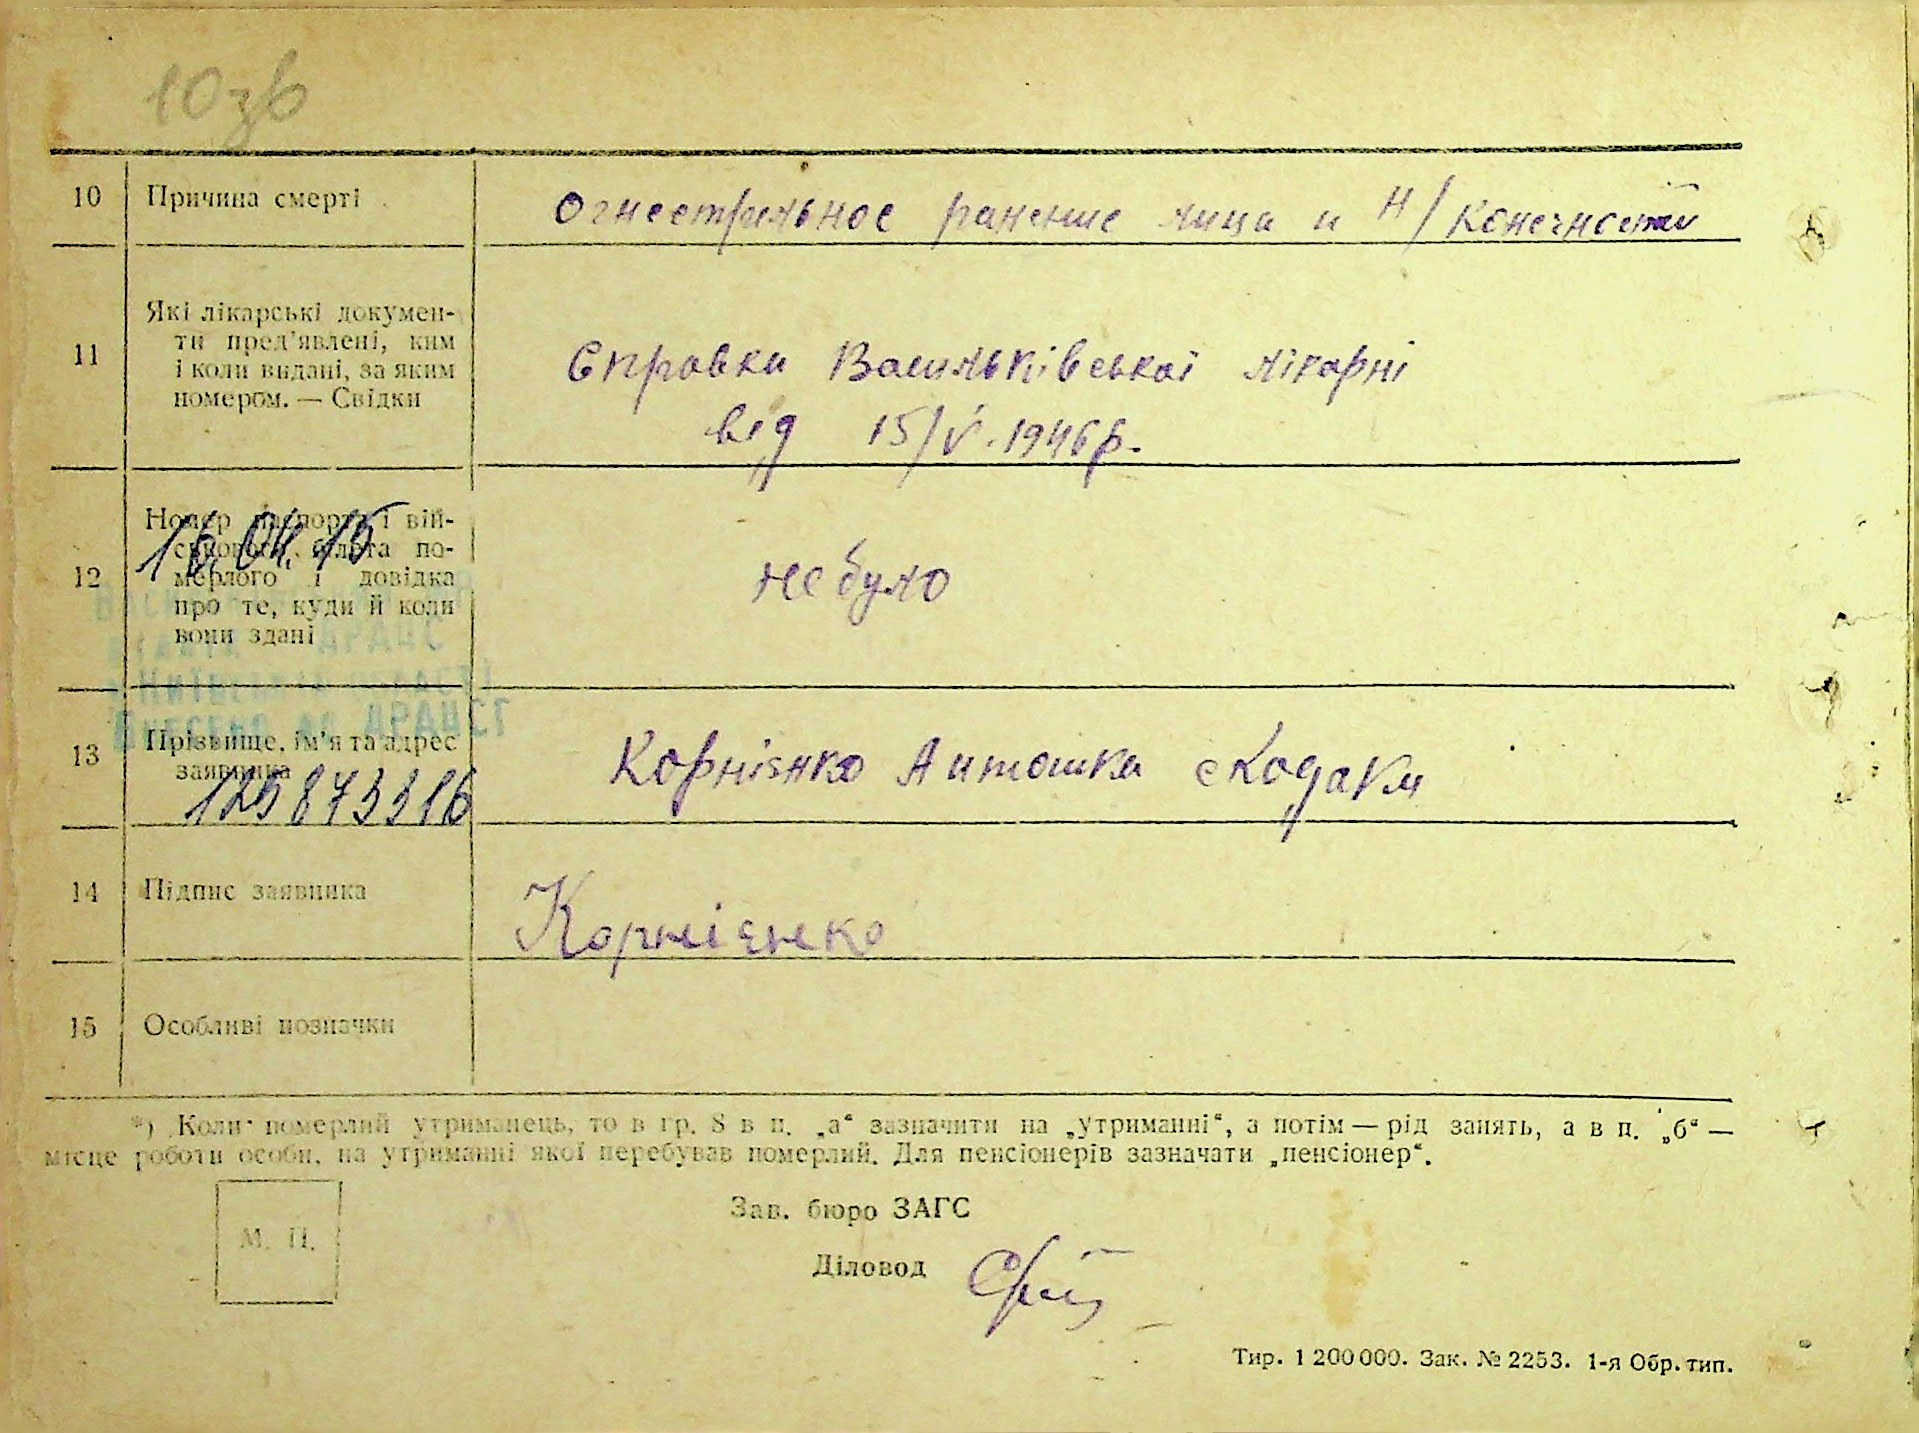 10зв
10 Причина смерті Огнестрельное ранение лица и н/конечностей
11 Які лікарські докумен-
ти пред'явлені, ким
і коли видані, за яким
номером. — Свідки
Справки Васильківської лікарні
від 15/V. 1946 р.
12 Номер паспорта і вій-
ськового білета по-
мерлого і довідка
про те, куди й коли
вони здані
не було
16.04.15
13 Прізвище, ім'я та адрес
заявника
Корнієнко Антошка с Кодаки
14 Підпис заявника Корнієнко
15 Особливі позначки
*) Коли померлий утриманець, то в гр. 8 в п. „а“ зазначити на „утриманні“, а потім — рід занять, а в п. „б“ —
місце роботи особи, на утриманні якої перебував померлий. Для пенсіонерів зазначати „пенсіонер“.
М. П.
Зав. бюро ЗАГС
Діловод
Тир. 1 200 000. Зак. № 2253. 1-я Обр. тип.